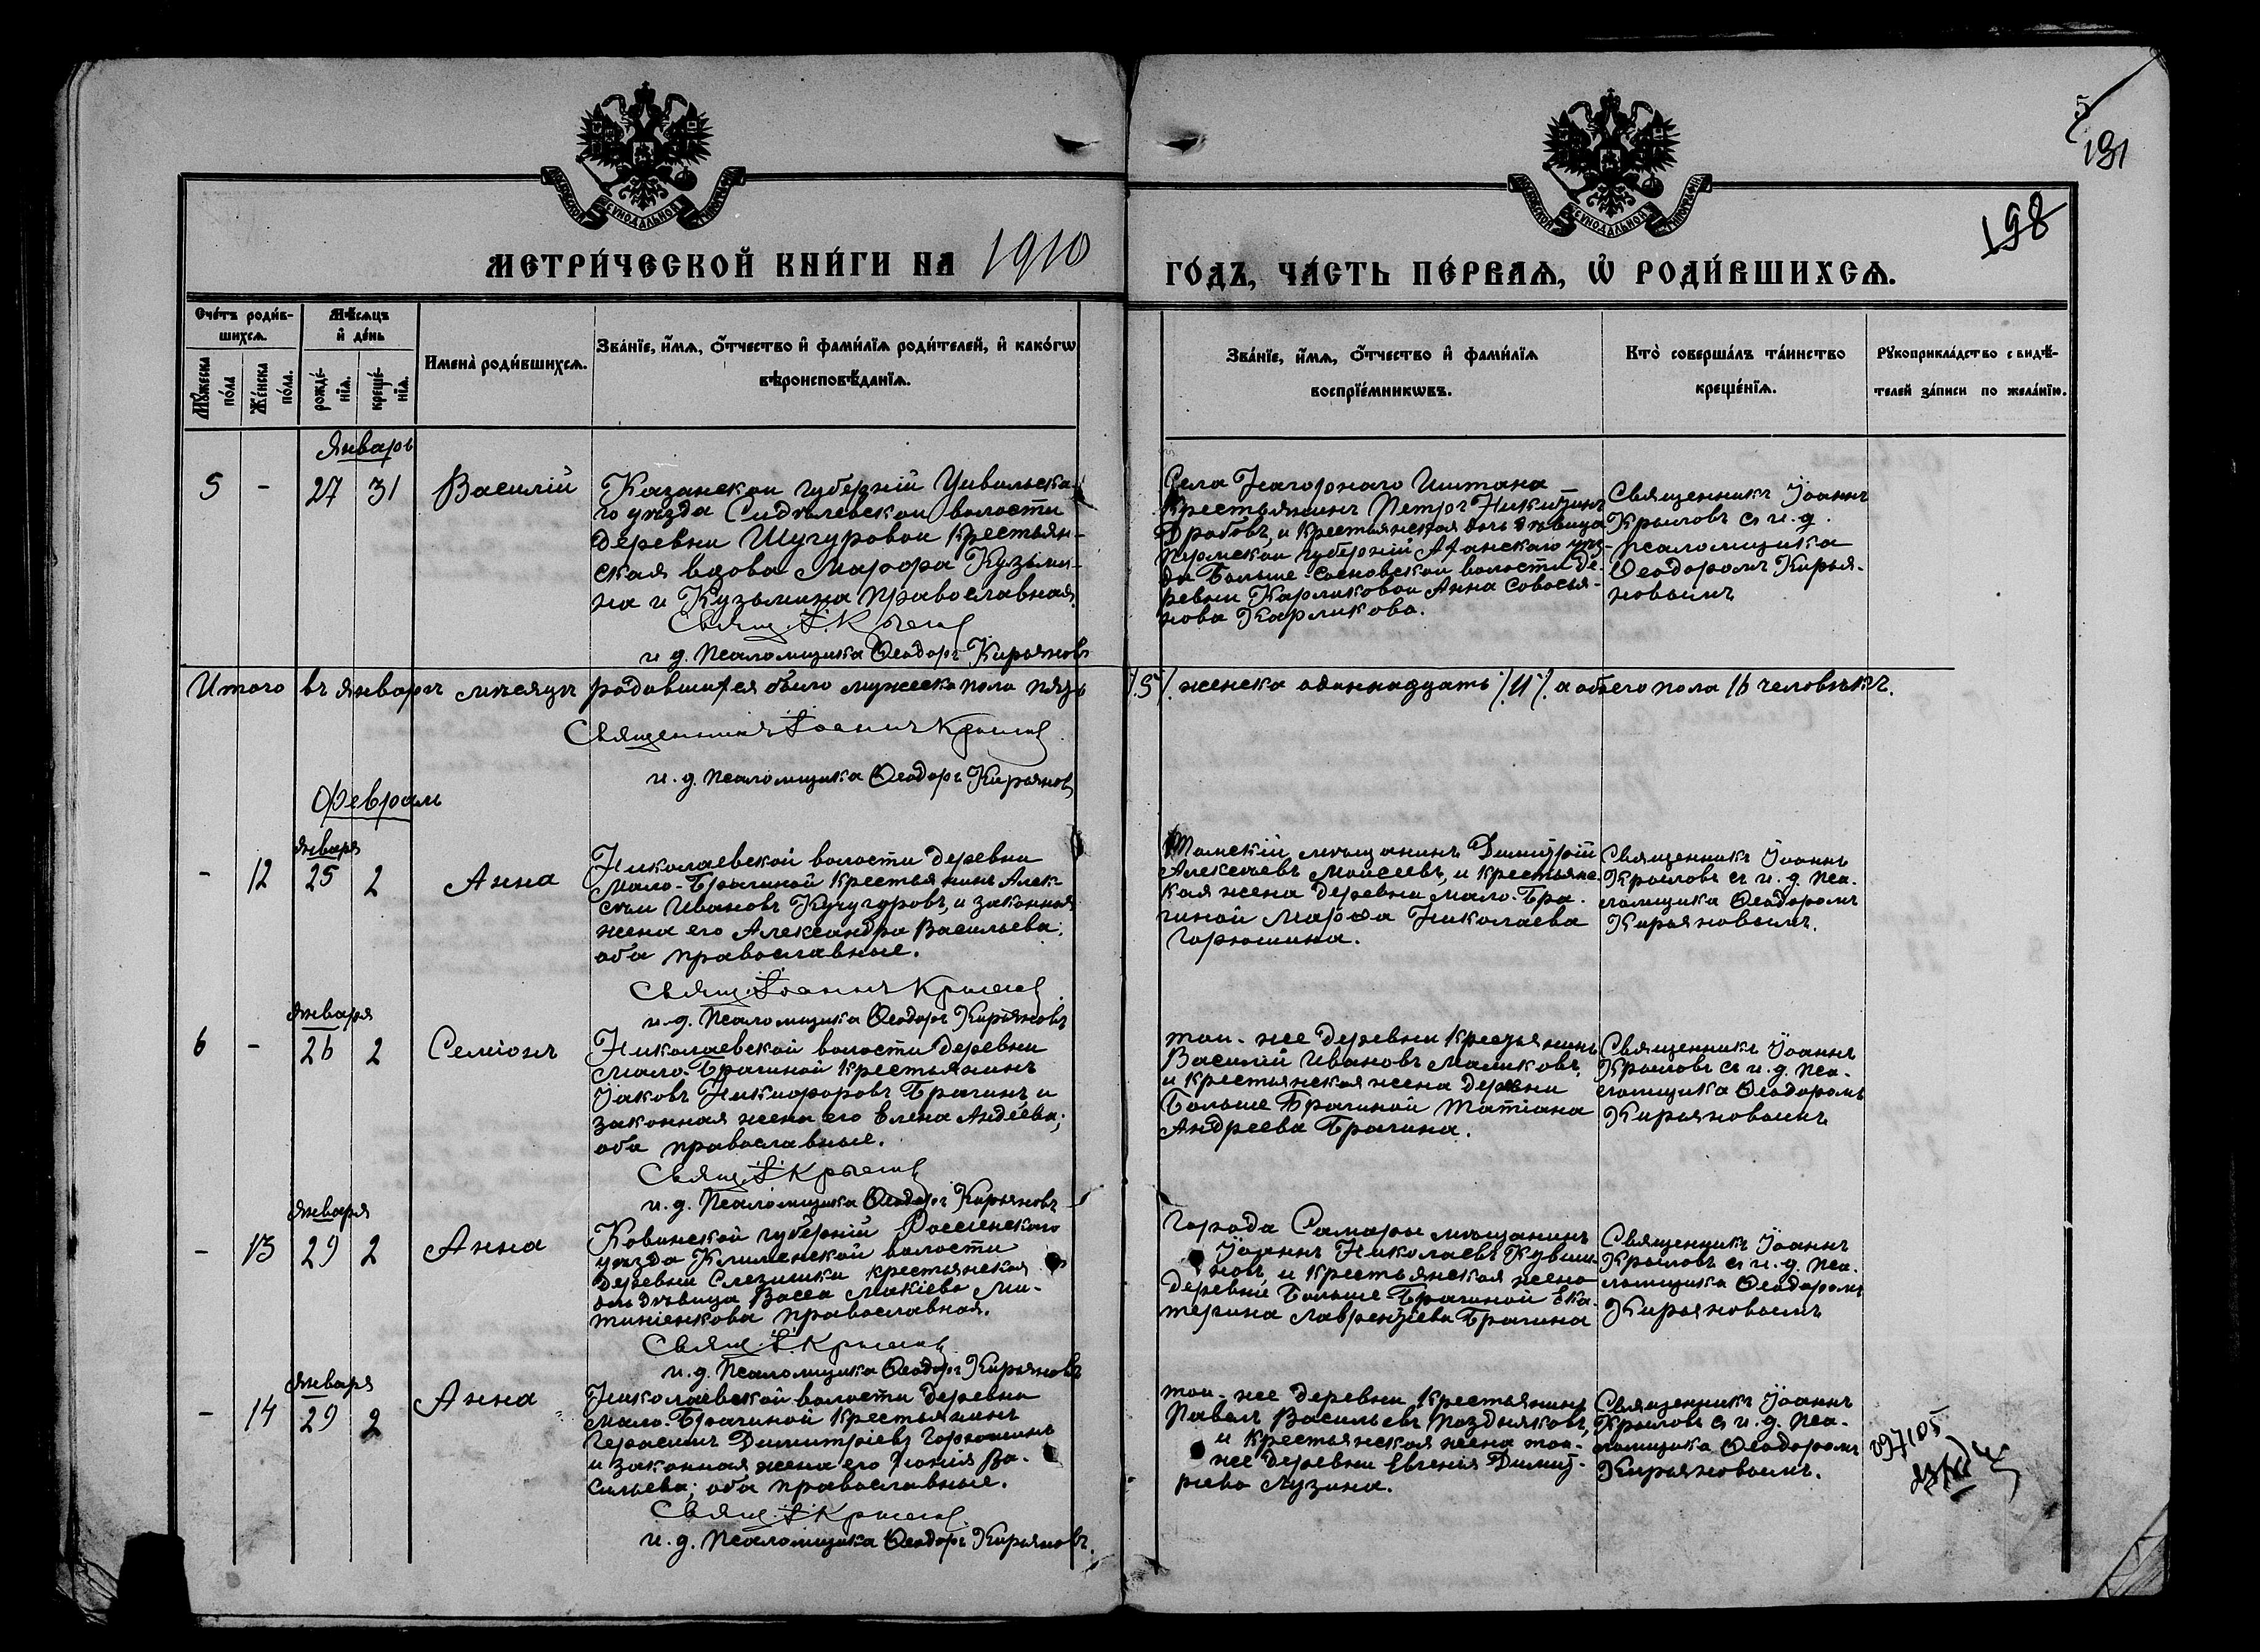 МОСКОВСКОЙ СѴНОДАЛЬНОЙ ТИПОГРАФІИ
МОСКОВСКОЙ СѴНОДАЛЬНОЙ ТИПОГРАФІИ
5
191
198
МЕТРИ́ЧЕСКОЙ КНИ́ГИ НА 1910
ГО́ДЪ, ЧА́СТЬ ПЕ́РВАѦ, Ѡ РОДИ́ВШИХСѦ.
Сче́тъ роди́в-
шихсѧ.
Мꙋ́жеска
по́ла
Же́нска
по́ла.
Мѣ́сѧцъ
и҆ де́нь
рожде́-
нїѧ.
креще́-
нїѧ.
Имена̀ роди́вшихсѧ.
Зва́нїе, и҆́мѧ, ѻ҆́тчество и҆ фами́лїѧ роди́телей, и҆ како́гѡ
вѣроисповѣ́данїѧ.
Зва́нїе, и҆́мѧ, ѻ҆́тчество и҆ фами́лїѧ
воспрїе́мникѡвъ.
Кто̀ соверша́лъ та́инство
креще́нїѧ.
Рꙋкоприкла́дство свидѣ́-
телей за́писи по жела́нїю.
Январь
5 - 27 31 Василій
Казанской губерніи Цивильска-
го уѣзда Сидѣлевской волости
деревни Шугуровой крестьян-
ская вдова Марфа Кузьми-
на и Кузьмина православная.
Свящ. І. Крылов
и. д. Псаломщика Ѳеодоръ Кирьяновъ
Села Нагорнаго Иштана
крестьянинъ Петръ Никитинъ
Дробовъ, и крестьянская дочь дѣвица
Пермской губерніи Аханскаго уѣз-
да Больше-Сосновской волости де-
ревни Карликовой Анна Савосья-
нова Карликова.
Священникъ Іоаннъ
Крыловъ съ и. д.
псаломщика
Ѳеодоромъ Кирья-
новымъ
Итого въ январѣ мѣсяцѣ родившихся было мужеска пола пять /.5/. женска одиннадцать /.11/. а обоего пола 16 человѣкъ.
Священникъ Іоаннъ Крылов
и. д. псаломщика Ѳеодоръ Кирьянов
Февраль
января
- 12 25 2 Анна
Николаевской волости деревни
Мало-Брагиной крестьянинъ Алек-
сѣй Ивановъ Кучугуровъ, и законная
жена его Александра Васильева;
оба православные.
Свящ. Іоаннъ Крылов
и. д. Псаломщика Ѳеодоръ Кирьяновъ
Томскій мѣщанинъ Димитрій
Алексѣевъ Моисеевъ, и крестьянс-
кая жена деревни Мало-Бра-
гиной Марѳа Николаева
Горюшина.
Священникъ Іоаннъ
Крыловъ съ и. д. пса-
ломщика Ѳеодоромъ
Кирьяновымъ.
января
6 - 26 2 Семіонъ
Николаевской волости деревни
Мало-Брагиной крестьянинъ
Іаковъ Никифоровъ Брагинъ и
законная жена его Елена Андеева;
оба православные.
Свящ. І. Крылов
и. д. Псаломщика Ѳеодоръ Кирьяновъ
той-же деревни крестьянинъ
Василій Ивановъ Маликовъ,
и крестьянская жена деревни
Больше Брагиной Татіана
Андреева Брагина.
Священникъ Іоаннъ
Крыловъ съ и. д. пса-
ломщика Ѳеодоромъ
Кирьяновымъ
января
- 13 29 2 Анна
Ковинской губерніи Россіенскаго
уѣзда Клименской волости
деревни Слезишки крестьянская
дочь дѣвица Васса Макіева Ми-
тиніенкова православная.
Свящ. І. Крылов
и. д. Псаломщика Ѳеодоръ Кирьяновъ
Города Самары мѣщанинъ
Іоаннъ Николаевъ Кувши-
новъ, и крестьянская жена
деревни Больше-Брагиной Ека-
терина Лаврентіева Брагина
Священникъ Іоаннъ
Крыловъ съ и. д. пса-
ломщика Ѳеодоромъ
Кирьяновымъ
января
- 14 29 2 Анна
Николаевской волости деревни
Мало-Брагиной крестьянинъ
Герасимъ Димитріевъ Горюшинъ
и законная жена его Іюлія Ва-
сильева; оба православные.
Свящ. І. Крылов
и. д. Псаломщика Ѳеодоръ Кирьяновъ.
той-же деревни крестьянинъ
Павелъ Васильевъ Поздняковъ,
и крестьянская жена той-
же деревни Евгенія Димит-
ріева Лузина.
Священникъ Іоаннъ
Крыловъ съ и. д. пса-
ломщика Ѳеодоромъ
Кирьяновымъ.